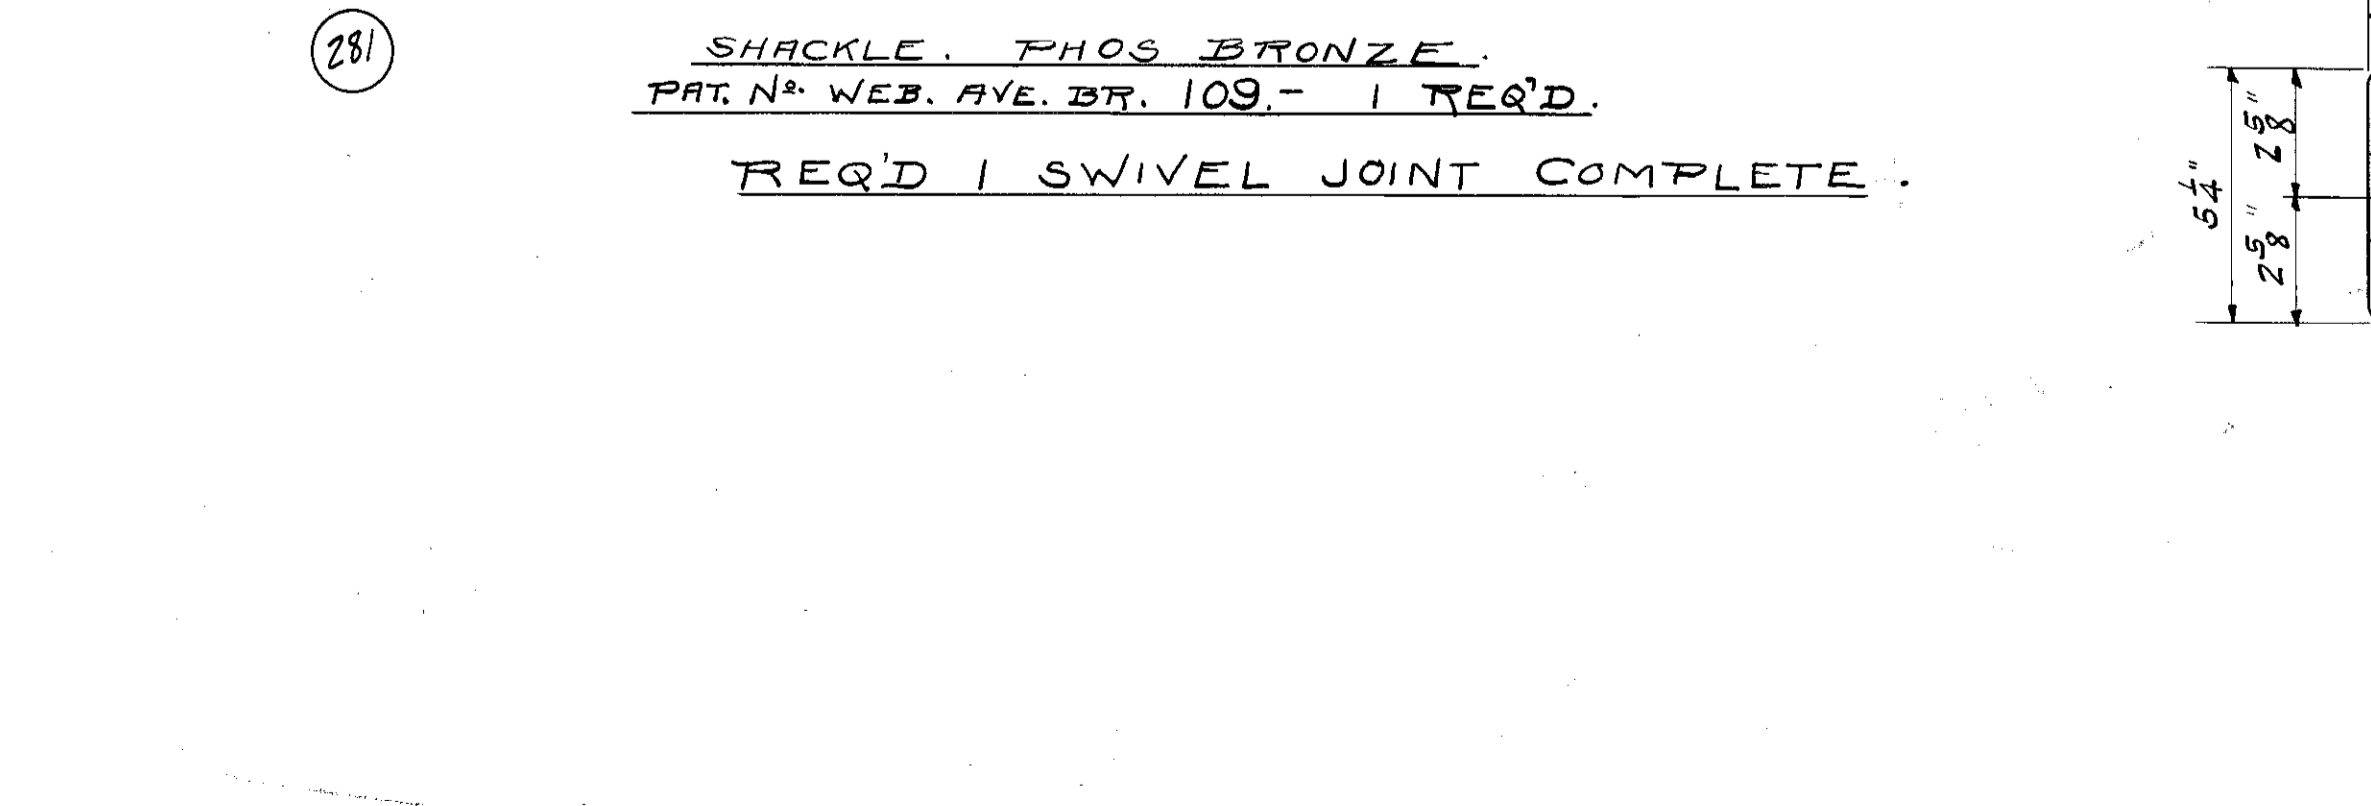 281
SHACKLE. PHOS BRONZE.
PAT. Nº. WEB. AVE. BR. 109.- 1 REQ'D.
REQ'D 1 SWIVEL JOINT COMPLETE.
5 1/4"
2 5/8"
2 5/8"